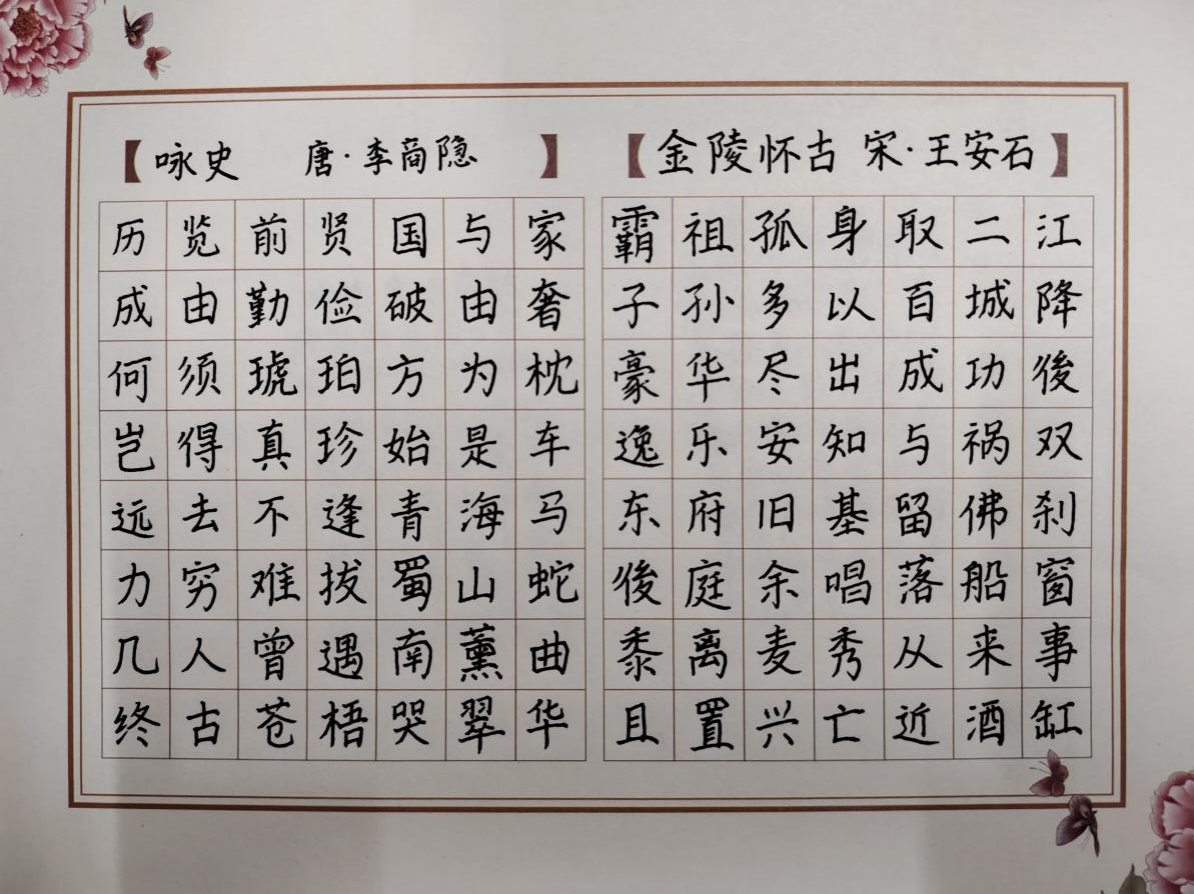 【咏史 唐·李商隐】
历览前贤国与家
成由勤俭破由奢
何须琥珀方为枕
岂得真珍始是车
远去不逢青海马
力穷难拔蜀山蛇
几人曾遇南薰曲
终古苍梧哭翠华
【金陵怀古 宋·王安石】
霸祖孤身取二江
子孙多以百城降
豪华尽出成功後
逸乐安知与祸双
东府旧基留佛刹
後庭余唱落船窗
黍离麦秀从来事
且置兴亡近酒缸